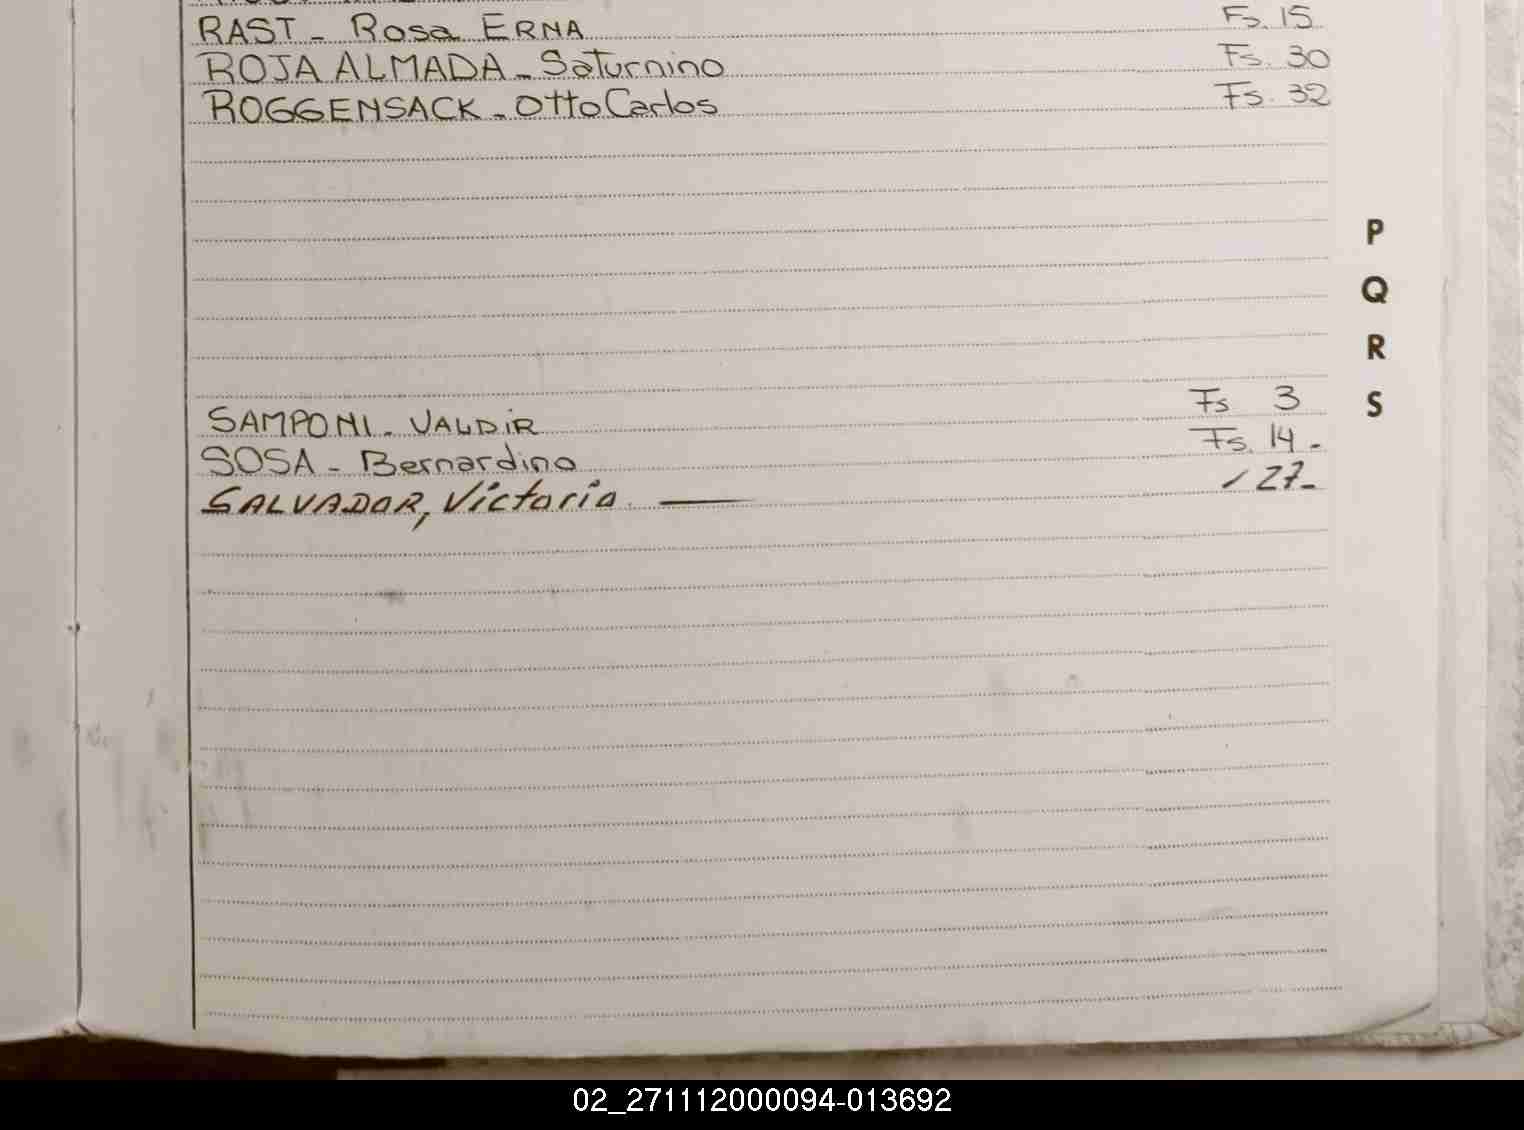 RAST - Rosa ERNA Fs. 15
ROJA ALMADA - Saturnino Fs. 30
ROGGENSACK - Otto Carlos Fs. 32
P
Q
R
S
SAMPONI - VALDIR Fs 3
SOSA - Bernardino Fs. 14 -
SALVADOR, Victoria — / 27-
02_271112000094-013692